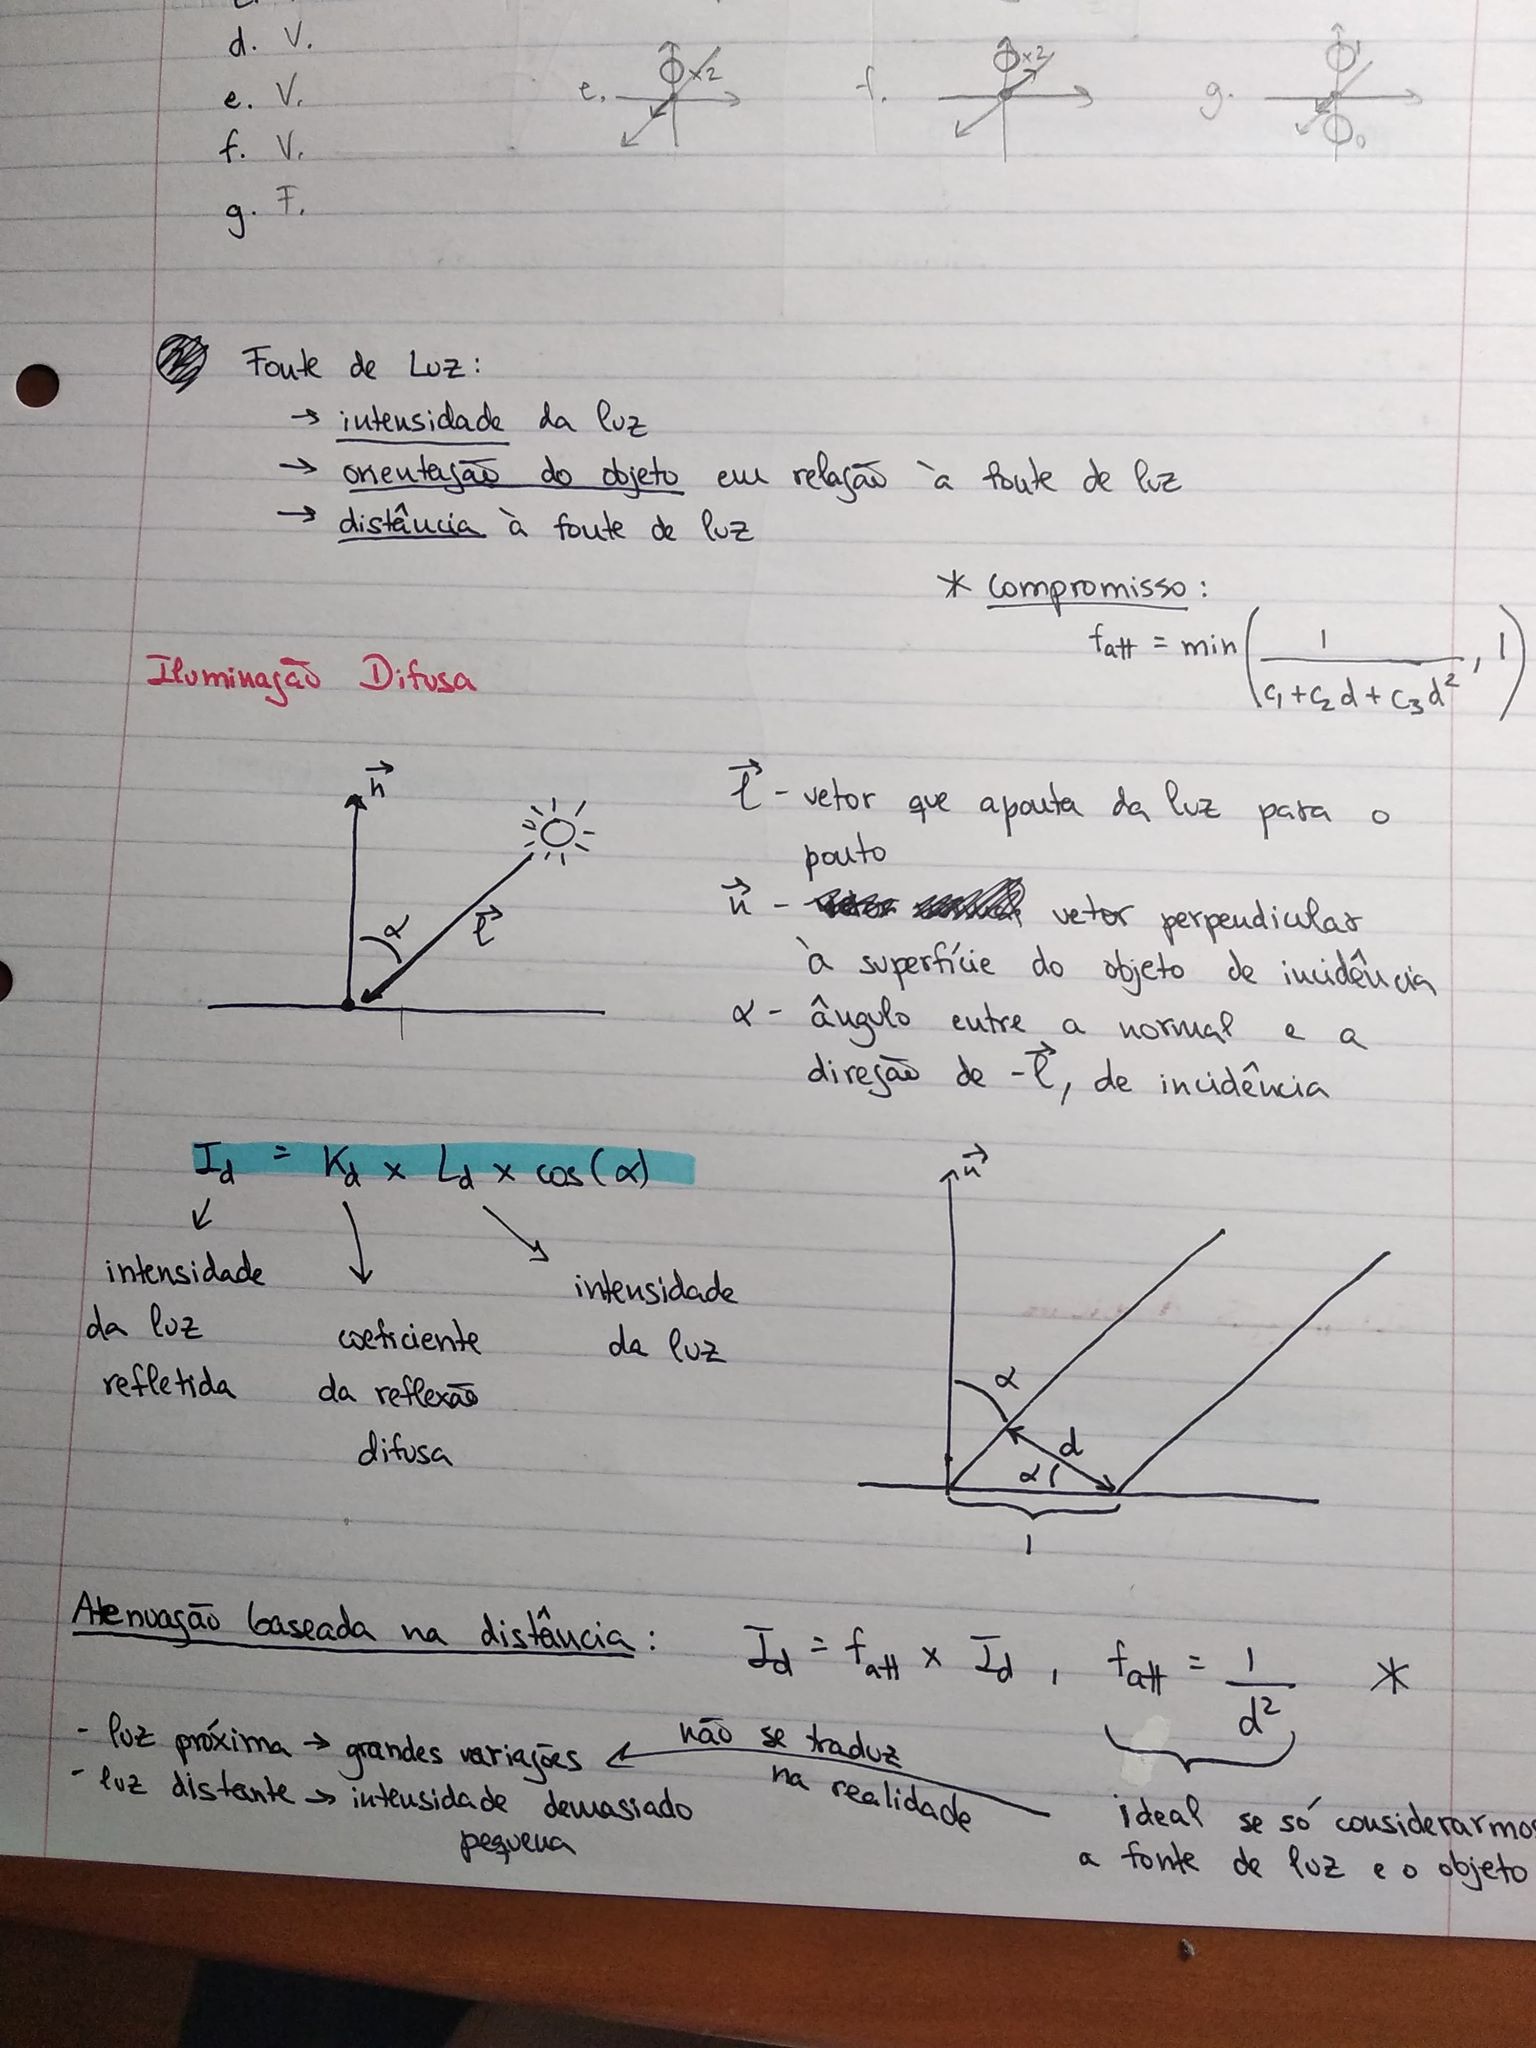 d. V.
e. V.
f. V.
g. F.
e. x2
f. x2
g.
Fonte de Luz:
→ intensidade da luz
→ orientação do objeto em relação à fonte de luz
→ distância à fonte de luz
* compromisso:
f_att = min(1/(c₁+c₂d+c₃d²), 1)
Iluminação Difusa
n⃗
α
l⃗
l⃗ - vetor que aponta da luz para o
ponto
n⃗ - vetor perpendicular
à superfície do objeto de incidência
α - ângulo entre a normal e a
direção de -l⃗, de incidência
I_d = K_d × L_d × cos(α)
intensidade
da luz
refletida
coeficiente
da reflexão
difusa
intensidade
da luz
n⃗
α
d
α
1
Atenuação baseada na distância: I_d = f_att × I_d, f_att = 1/d² *
- luz próxima → grandes variações
- luz distante → intensidade demasiado
pequena
não se traduz
na realidade
ideal se só considerarmos
a fonte de luz e o objeto